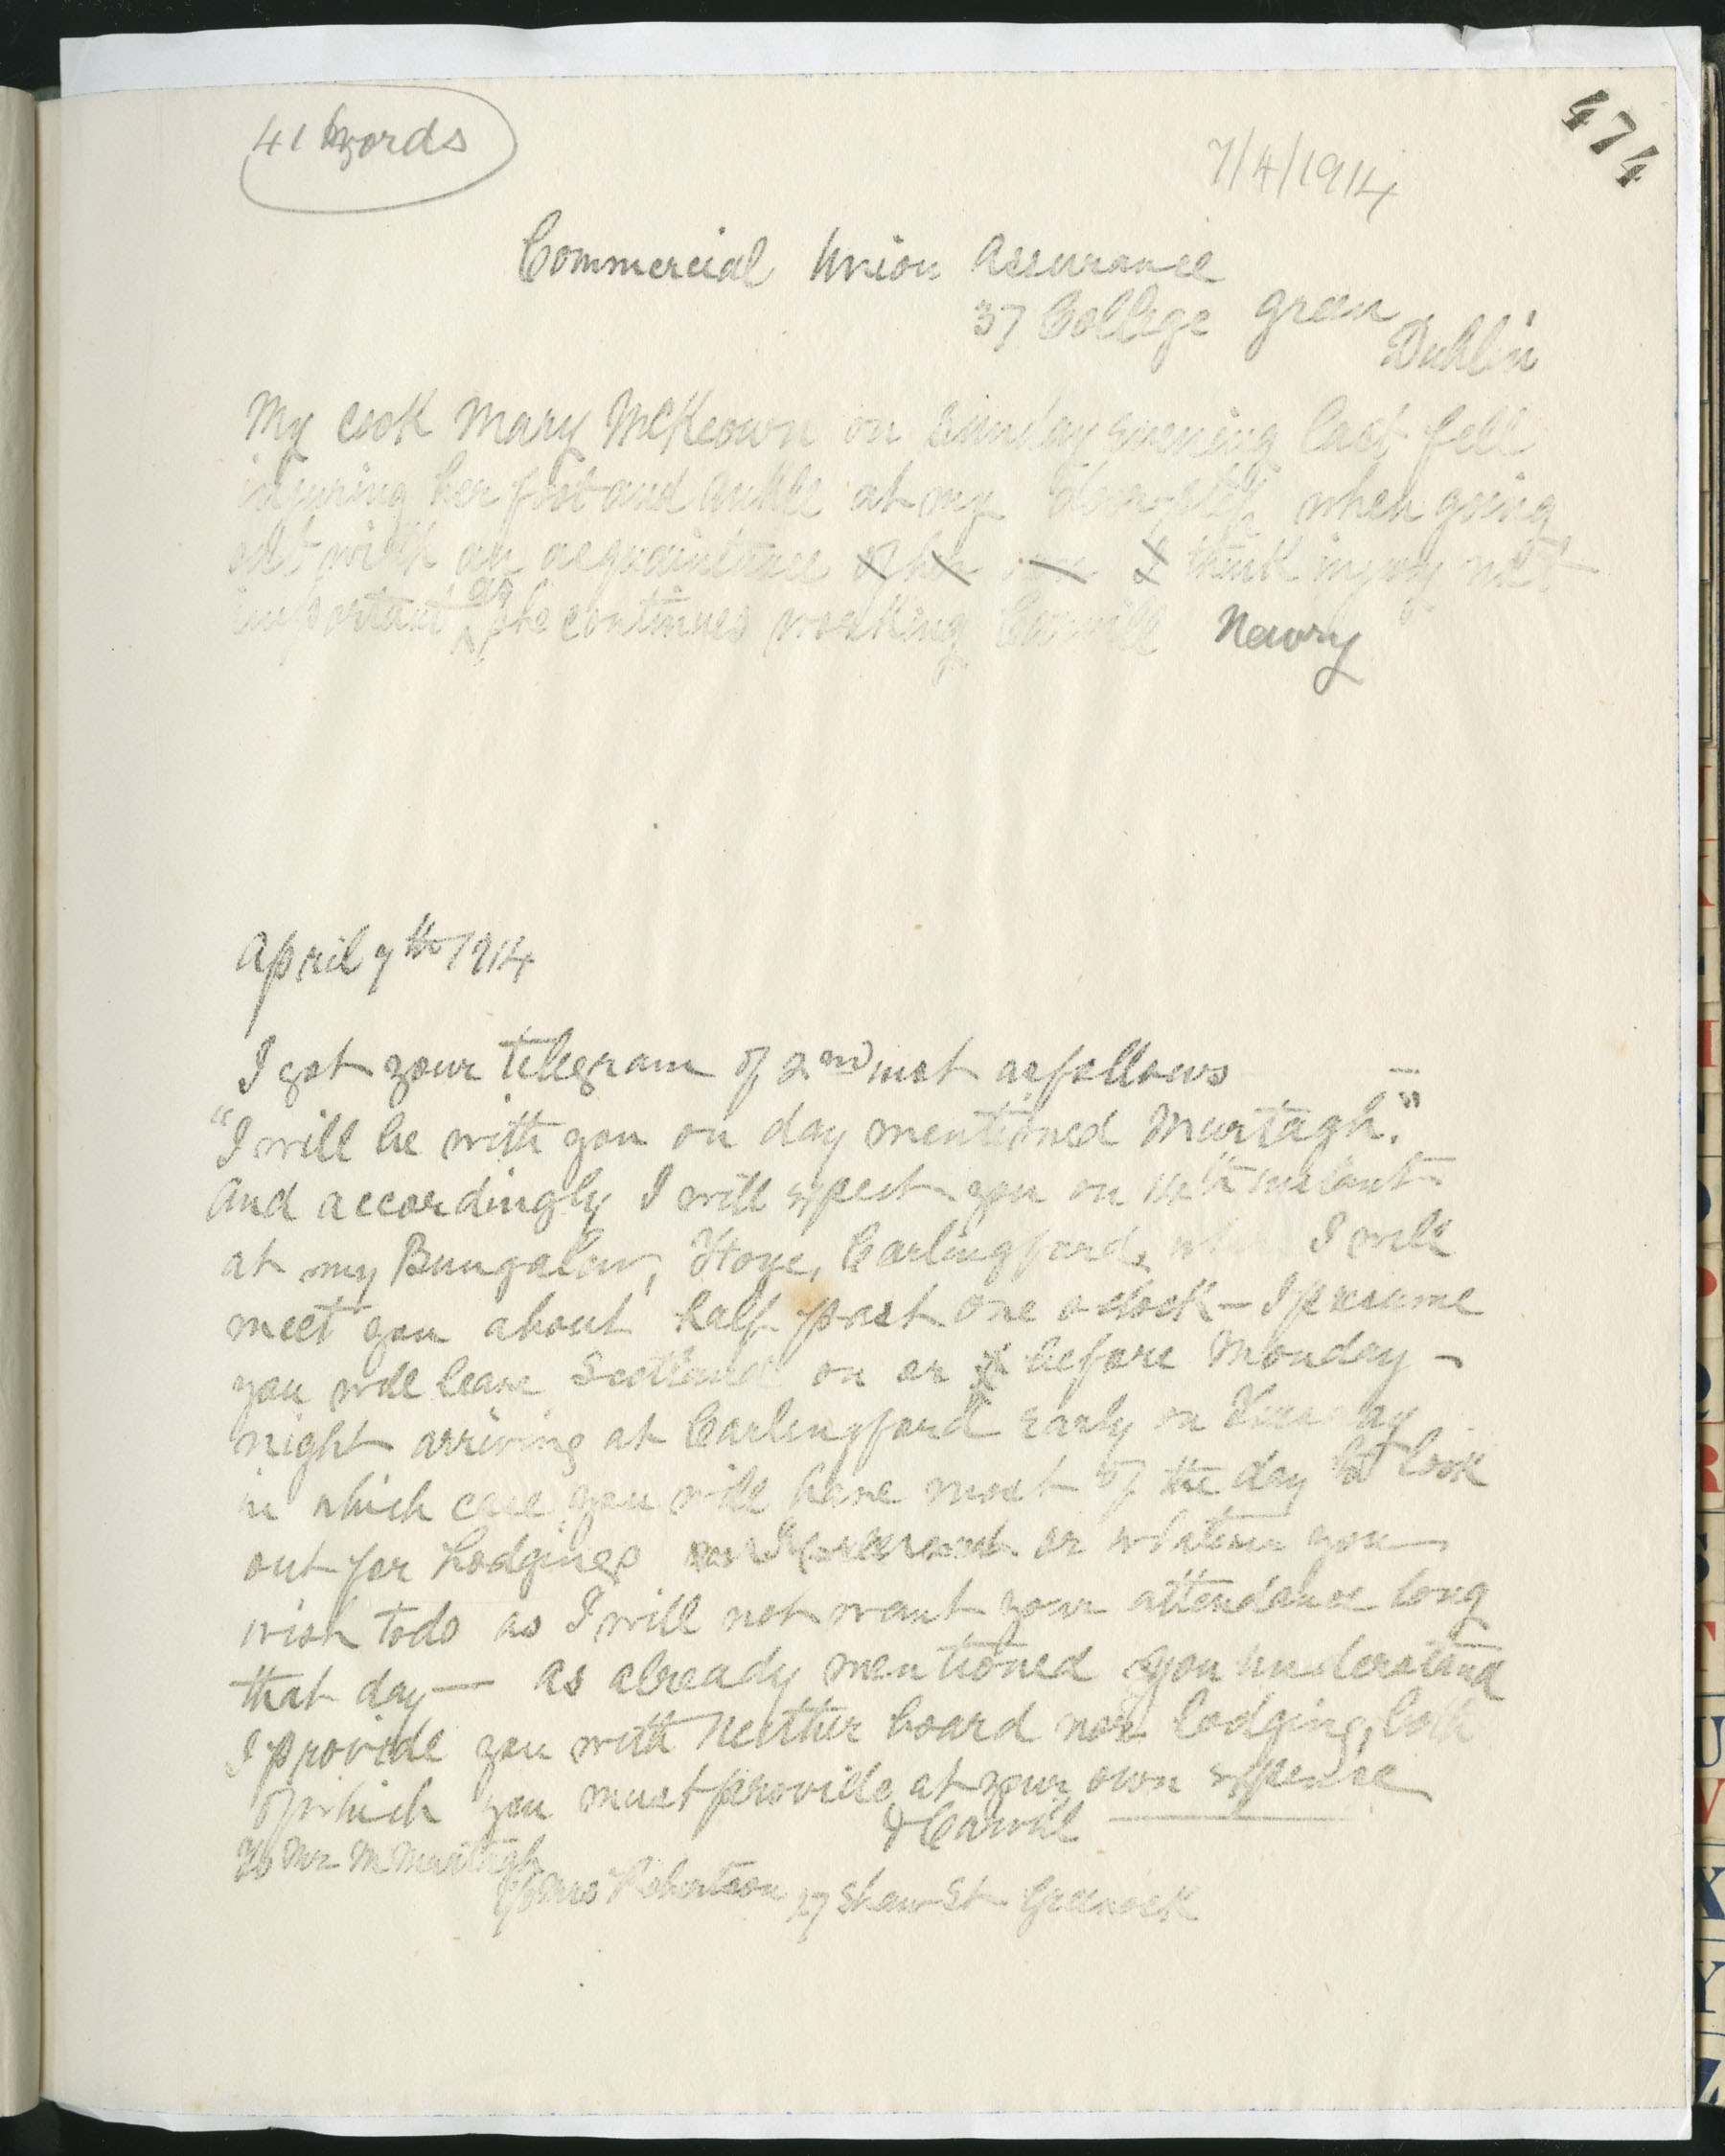 474
41 words
7/4/1914
Commercial Union Assurance
37 College Green
Dublin
My cook Mary McKeown on Sunday evening last fell
injuring her foot and ankle at my door-step when going
out with an acquaintance of her own I think injury not
important as she continues working Carvill Newry
April 7th 1914
I got your telegram of 2nd inst as follows
"I will be with you on day mentioned Murtagh."
And accordingly I will expect you on 14th instant
at my Bungalow, Ktoye, Carlingford, I will
meet you about half past one oclock - I presume
you will leave Scotland on or before Monday -
night arriving at Carlingford early on Tuesday
in which case you will have most of the day to look
out for Lodgings or whatever you
wish to do as I will not want your attendance long
that day - as already mentioned you understand
I provide you with neither board nor lodging, both
of which you must provide at your own expense
Carvill
To Mr M Murtagh
c/o Mrs Robertson 17 Shaw St Greenock